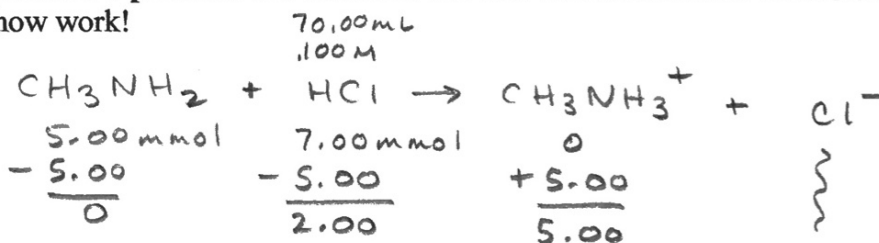 now work!
70.00mL
.100 M
CH₃NH₂ + HCl → CH₃NH₃⁺ + Cl⁻
5.00 mmol 7.00 mmol 0
- 5.00 - 5.00 + 5.00
0 2.00 5.00